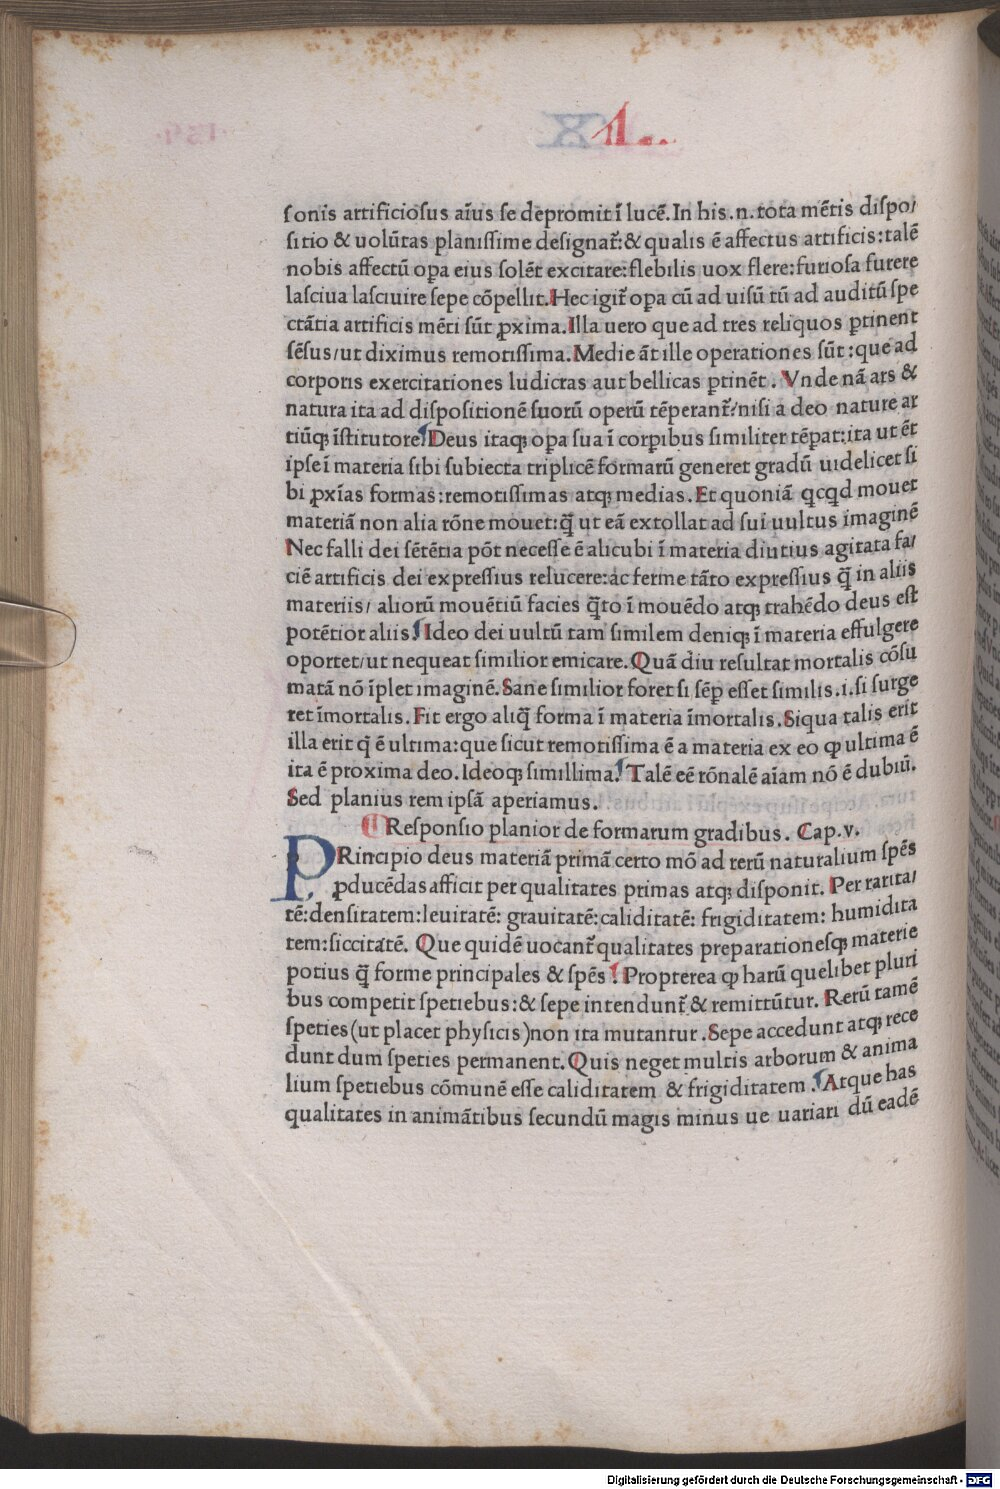 L..
sonis artificiosus aīus se depromit ī lucē. In his .n. tota mētis dispo/
sitio & uolūtas planissime designat᷑:& qualis ē affectus artificis:talē
nobis affectū opa eius solēt excitare:flebilis uox flere:furiosa furere
lasciua lasciuire sepe cōpellit. Hec igit᷑ opa cū ad uisū tū ad auditū spe
ctātia artificis mēti sūt ꝓxima. Illa uero que ad tres reliquos ptinent
sēsus/ut diximus remotissima. Medie āt ille operationes sūt :que ad
corporis exercitationes ludicras aut bellicas ptinēt . Vnde nā ars &
natura ita ad dispositionē suorū operū tēperant᷑/nisi a deo nature ar
tiūqꝫ īstitutore? Deus itaqꝫ opa sua ī corpibus similiter tēpat:ita ut ēt
ipse ī materia sibi subiecta triplicē formarū generet gradū uidelicet si
bi ꝓxīas formas:remotissimas atqꝫ medias. Et quoniā qcqd mouet
materiā non alia rōne mouet:q̄ ut eā extollat ad sui uultus imaginē
Nec falli dei sētētia pōt necesse ē alicubi ī materia diutius agitata fa/
ciē artificis dei expressius relucere:ac ferme tāto expressius q̄ in aliis
materiis/ aliorū mouētiū facies q̄to ī mouēdo atqꝫ trahēdo deus est
potētior aliis. Ideo dei uultū tam similem deniqꝫ ī materia effulgere
oportet/ut nequeat similior emicare. Quā diu resultat mortalis cōsu
matā nō īplet imaginē. Sane similior foret si sēp esset similis .i. si surge
ret īmortalis. Fit ergo aliq̄ forma ī materia īmortalis. Siqua talis erit
illa erit q̄ ē ultima:que sicut remotissima ē a materia ex eo ꝙ ultima ē
ita ē proxima deo. Ideoqꝫ simillima. Talē eē rōnalē aīam nō ē dubiū.
Sed planius rem ipsā aperiamus.
Responsio planior de formarum gradibus. Cap.v.
PRincipio deus materiā primā certo mō ad rerū naturalium spēs
ꝓducēdas afficit per qualitates primas atqꝫ disponit. Per rarita/
tē:densitatem:leuitatē: grauitatē:caliditatē: frigiditatem: humidita
tem:siccitatē. Que quidē uocant᷑ qualitates preparationesqꝫ materie
potius q̄ forme principales & spēs! Propterea ꝙ harū quelibet pluri
bus competit spetiebus:& sepe intendunt᷑ & remittūtur. Rerū tamē
speties(ut placet physicis)non ita mutantur . Sepe accedunt atqꝫ rece
dunt dum speties permanent. Quis neget multis arborum & anima
lium spetiebus cōmunē esse caliditatem & frigiditatem . Atque has
qualitates in animātibus secundū magis minus ue uariari dū eadē
Digitalisierung gefördert durch die Deutsche Forschungsgemeinschaft - DFG